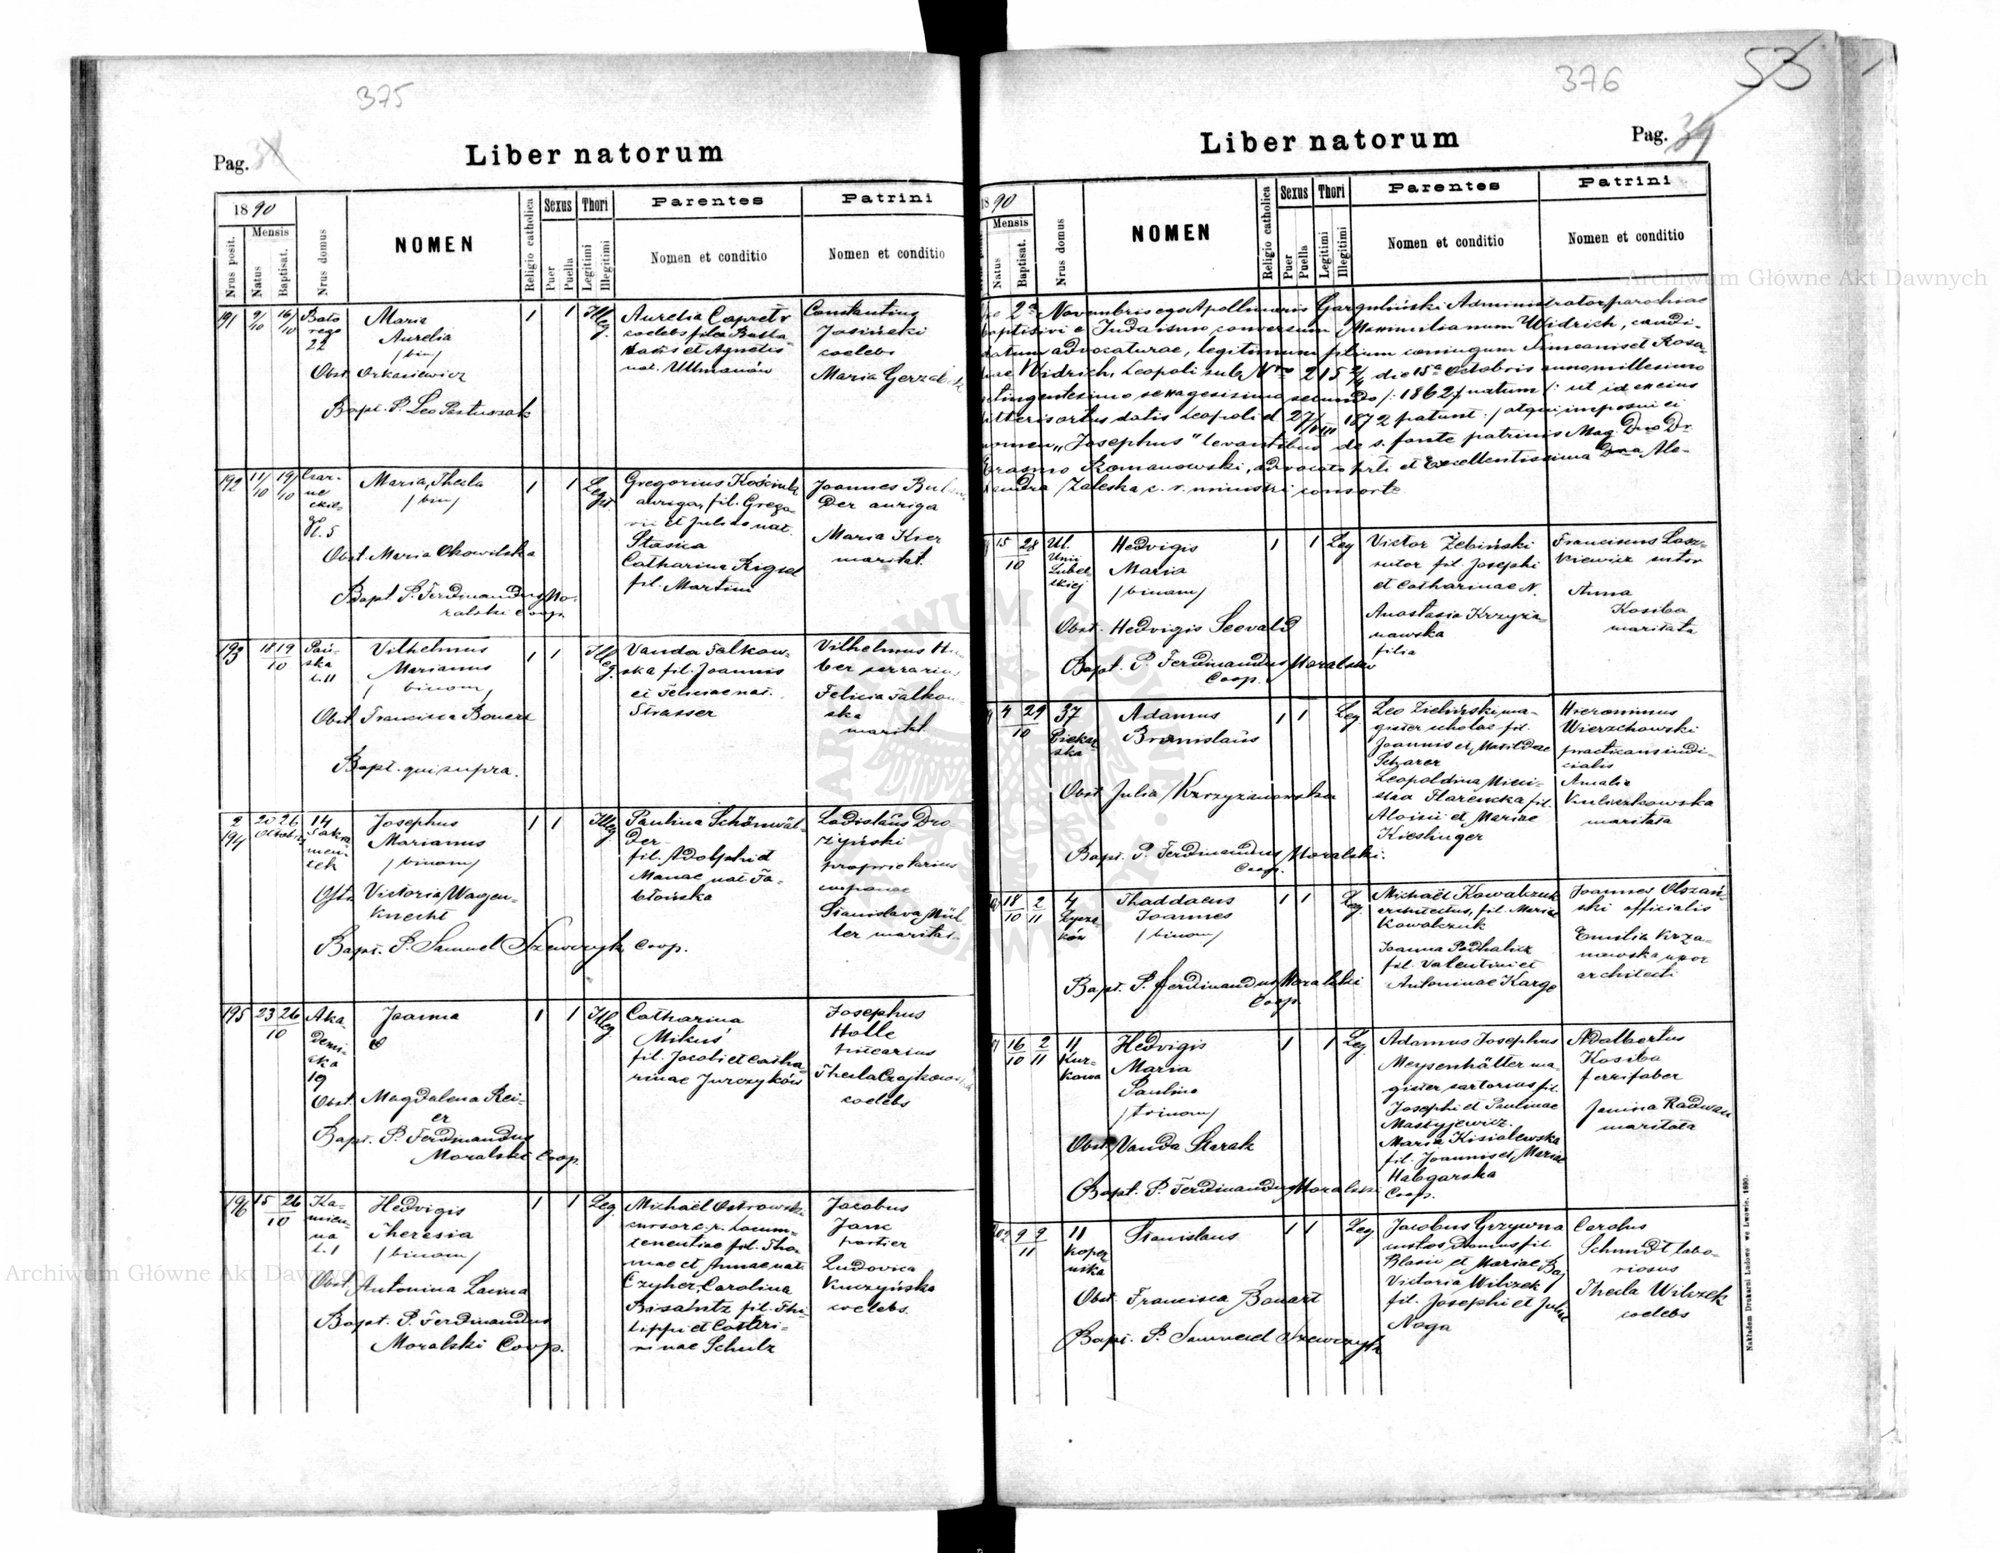 375
Pag.
Liber natorum
1890
Mensis
Nrus posit.
Natus
Baptisat.
Nrus domus
NOMEN
Religio catholica
Sexus
Puer
Puella
Thori
Legitimi
Illegitimi
Parentes
Nomen et conditio
Patrini
Nomen et conditio
191 9/10 16/10 Bato
rego
22
Maria
Aurelia
/bin/
1 1 Illeg.
Obst. Orkasiewicz
Bapt. P. Leo Pastuszak
Aurelia
coelebs filia
et Agnetis
nat. Ullmanów
Constantinus
Jasiński
coelebs
Maria
192 11/10 19/10 Czar-
ne
5
Maria, Thecla
/bin/
1 1 Leg
Obst. Maria Okowilska
Bapt. P. Ferdinandus Mo-
ralski Coop.
Gregorius
auriga, fil. Grego-
rii et Juliae nat.
Stasica
Catharina
fil. Martini
Joannes
auriga
Maria
maritat.
193 18 19/10 Pań-
ska
l. 11
Vilhelmus
Marianus
/binom/
1 1 Illeg.
Obst. Francisca Bonert
Bapt. qui supra.
Vanda Falkow-
ska fil. Joannis
et Feliciae nat.
Strasser
Vilhelmus Hu-
ber
Felicia Falkow-
ska
maritat.
2
194 20 26 Octobris 14
Sakra
men-
tek
Josephus
Marianus
/binom/
1 1 Illeg
Obst. Victoria Wagen-
knecht
Bapt. P. Samuel Szewczyk Coop.
Paulina Schönwäl-
der
fil. Adolphi et
Mariae nat. Ja-
błońska
Ladislaus Dro-
żyński
proprietarius
Stanislava Mül-
ler maritat.
195 23 26/10 Aka
demi-
cka
19
Joanna
1 1 Illeg.
Obst. Magdalena Rei-
er
Bapt. P. Ferdinandus
Moralski Coop.
Catharina
Mikuś
fil. Jacobi et Catha-
rinae Jurczyków
Josephus
Holle
Thecla
coelebs
196 15 26/10 Ka-
mien-
na
l. 1
Hedvigis
Theresia
/binom/
1 1 Leg.
Obst. Antonina
Bapt. P. Ferdinandus
Moralski Coop.
Michaël Ostrowski
cursor c. r. Locum-
tenentiae fil. Tho-
mae et Annae nat.
Czyher, Carolina
fil. Phi-
lippi et Cathe-
rinae Schulz
Jacobus
Janc
portier
Ludovica
Kuczyńska
coelebs.
376
53
Liber natorum
Pag. 39
1890
Mensis
Natus
Baptisat.
Nrus domus
NOMEN
Religio catholica
Sexus
Puer
Puella
Thori
Legitimi
Illegitimi
Parentes
Nomen et conditio
Patrini
Nomen et conditio
2a Novembris ego Apollinaris Garguliński Administrator parochiae
baptisivi e Judaismo conversum Maximilianum Widrich, candi-
datum advocaturae, legitimum filium coniugum et Rosa-
Widrich, Leopoli sub Nro 215 2/4 die 15a Octobris anno millesimo
sexagesimo secundo /: 1862 :/ natum /: ut id ex eius
litteris ortus datis Leopoli d 27/VIII 1872 patent :/ atqui imposui ei
nomen „Josephus" levantibus de s. fonte patrinis Mag. Dno Dr.
Erasmo Romanowski, advocato et Excellentissima Dna Ale-
xandra Zaleska c. r. ministri consorte.
15 28/10 Ul.
Unii
Lubel-
skiej
Hedvigis
Maria
/binom/
1 1 Leg
Obst. Hedvigis Seevald
Bapt. P. Ferdinandus Moralski
Coop.
Victor Żebiński
sutor fil. Josephi
et Catharinae N.
Anastasia Krzyża-
nowska
filia
Franciscus Lasz-
kiewicz sutor
Anna
Kosiba
maritata
4 29/10 37
Piekar-
ska
Adamus
Bronislaus
1 1 Leg.
Obst. Julia Krzyżanowska
Bapt. P. Ferdinandus Moralski.
Coop.
Leo Zieliński, ma-
gister scholae fil.
Joannis et Matildae
Scharer
Leopoldina Mieci-
slaa fil.
Aloisii et Mariae
Kieslinger
Hieronimus
Wierzchowski
practicans iudi-
cialis
Amalia
Kulczkowska
maritata
18/10 2/11 4
Łycza-
ków
Thaddaeus
Joannes
/binom/
1 1 Leg.
Bapt. P. Ferdinandus Moralski
Coop.
Michaël Kowalczuk
architectus, fil. Mariae
Kowalczuk
Joanna Podhalicz
fil. Valentini et
Antoninae Karge
Joannes Olszań-
ski officialis
Emilia Krza-
nowska uxor
architecti
16/10 2/11 11
Kur-
kowa
Hedvigis
Maria
Paulina
/trinom/
1 1 Leg.
Obst. Vanda Starak
Bapt. P. Ferdinandus Moralski
Coop.
Adamus Josephus
Meysenhälter ma-
gister sartorius fil.
Josephi et Paulinae
Mastyjewicz.
Maria Kisielewska
fil. Joannis et Mariae
Habgarska
Adalbertus
Kosiba
ferrifaber
Janina Radwan
maritata
202 9 9/11 11
Koper-
nika
Stanislaus
1 1 Leg
Obst. Francisca Bonart
Bapt. P. Samuel Szewczyk
Jacobus Grzywna
custos domus fil.
Blasii et Mariae Baj
Victoria Wilczek
fil. Josephi et Juliae
Noga
Carolus
Schmidt labo-
riosus
Thecla Wilczek
coelebs
Nakładem Drukarni Ludowej we Lwowie. 1890.
Archiwum Główne Akt Dawnych
Archiwum Główne Akt Dawnych
ARCHIWUM GŁÓWNE AKT DAWNYCH